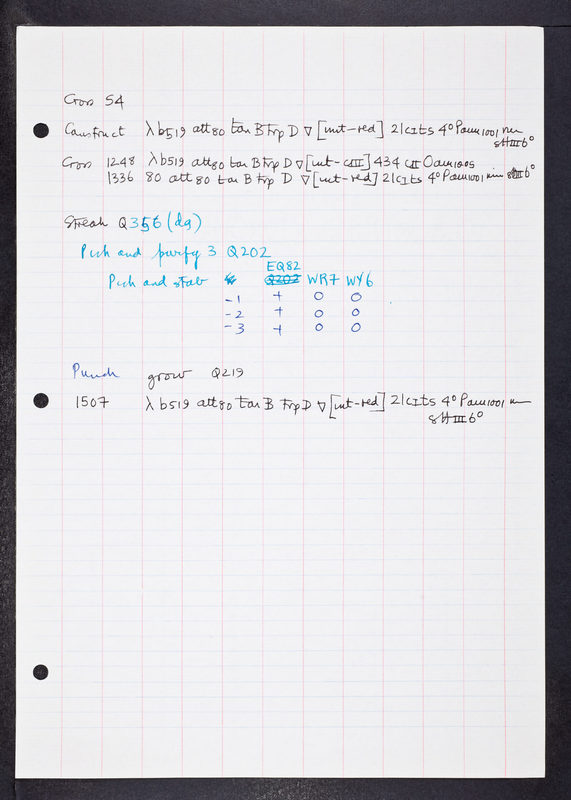 Cross 54
Construct λ b519 att80 ton B trp D ∇ [int-red] 21 cIts 4° Pam1001 nin
sHIII 6°
Cross 1248 λ b519 att80 ton B trp D ∇ [int-cIII] 434 cII Oam1005
1336 80 att80 ton B trp D ∇ [int-red] 21 cIts 4° Pam1001 nin sHIII 6°
Streak Q356 (dg)
Pick and purify 3 Q202
EQ82
Pick and stab Q202 WR7 WY6
-1 + 0 0
-2 + 0 0
-3 + 0 0
Punch grow Q219
1507 λ b519 att80 ton B trp D ∇ [int-red] 21 cIts 4° Pam1001 nin
sHIII 6°